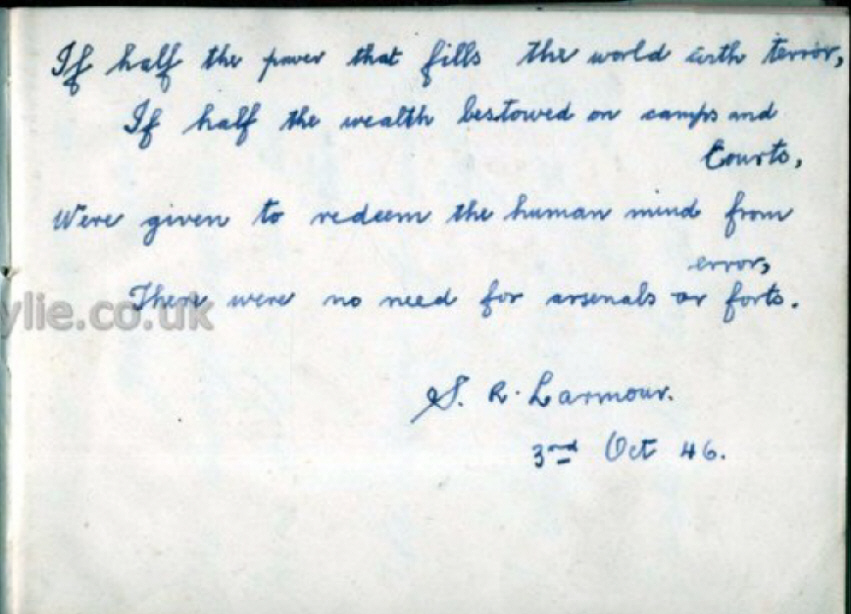 If half the power that fills the world with terror,
If half the wealth bestowed on camps and
Courts,
Were given to redeem the human mind from
error,
There were no need for arsenals or forts.
ylie.co.uk
S. R. Larmour.
3nd Oct 46.